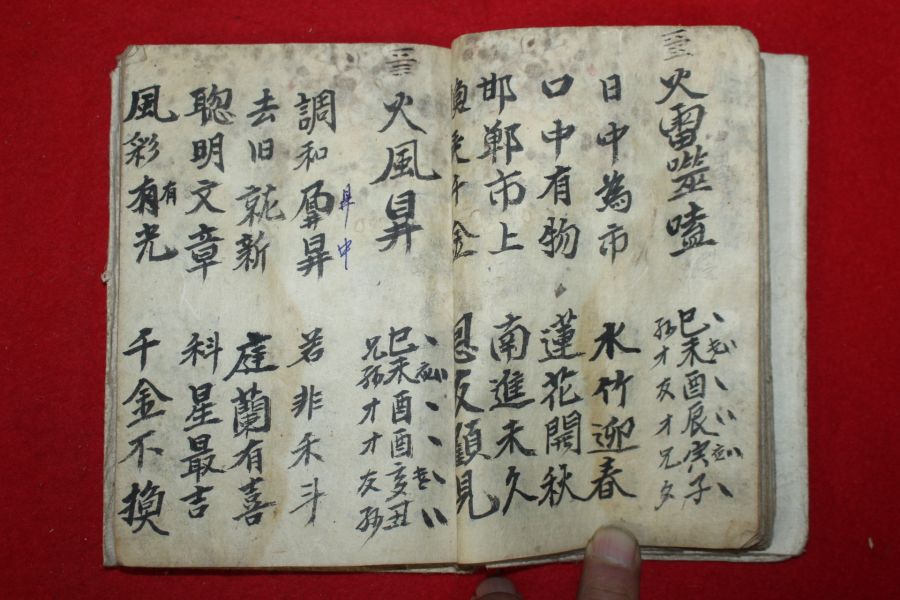 火雷噬嗑
巳未酉辰寅子
孫才友才兄父
日中為市 水竹迎春
口中有物 蓮花開秋
邯鄲市上 南進未久
千金
火風昇
巳未酉酉亥丑
兄孫才才友孫
調和鼎昇 若非禾斗
昇中
去旧就新 庭蘭有喜
聰明文章 科星最吉
風彩有光 千金不換
有